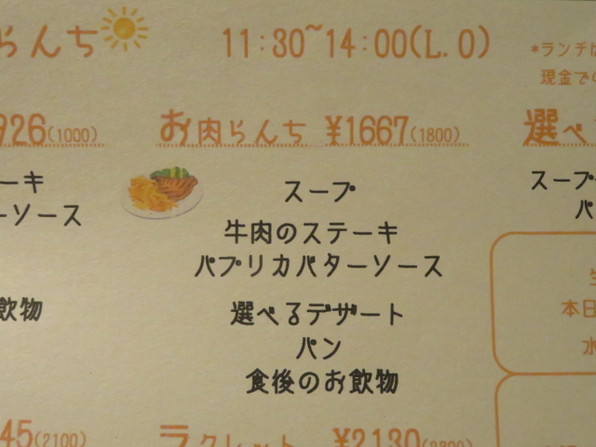 らんち
11:30~14:00(L.O)
*ランチは
現金での
926(1000)
お肉らんち ¥1667(1800)
選べ
ーキ
ーソース
飲物
スープ
牛肉のステーキ
パプリカバターソース
選べるデザート
パン
食後のお飲物
スープ
パ
本日
水
45(2100)
ラクレット ¥2130